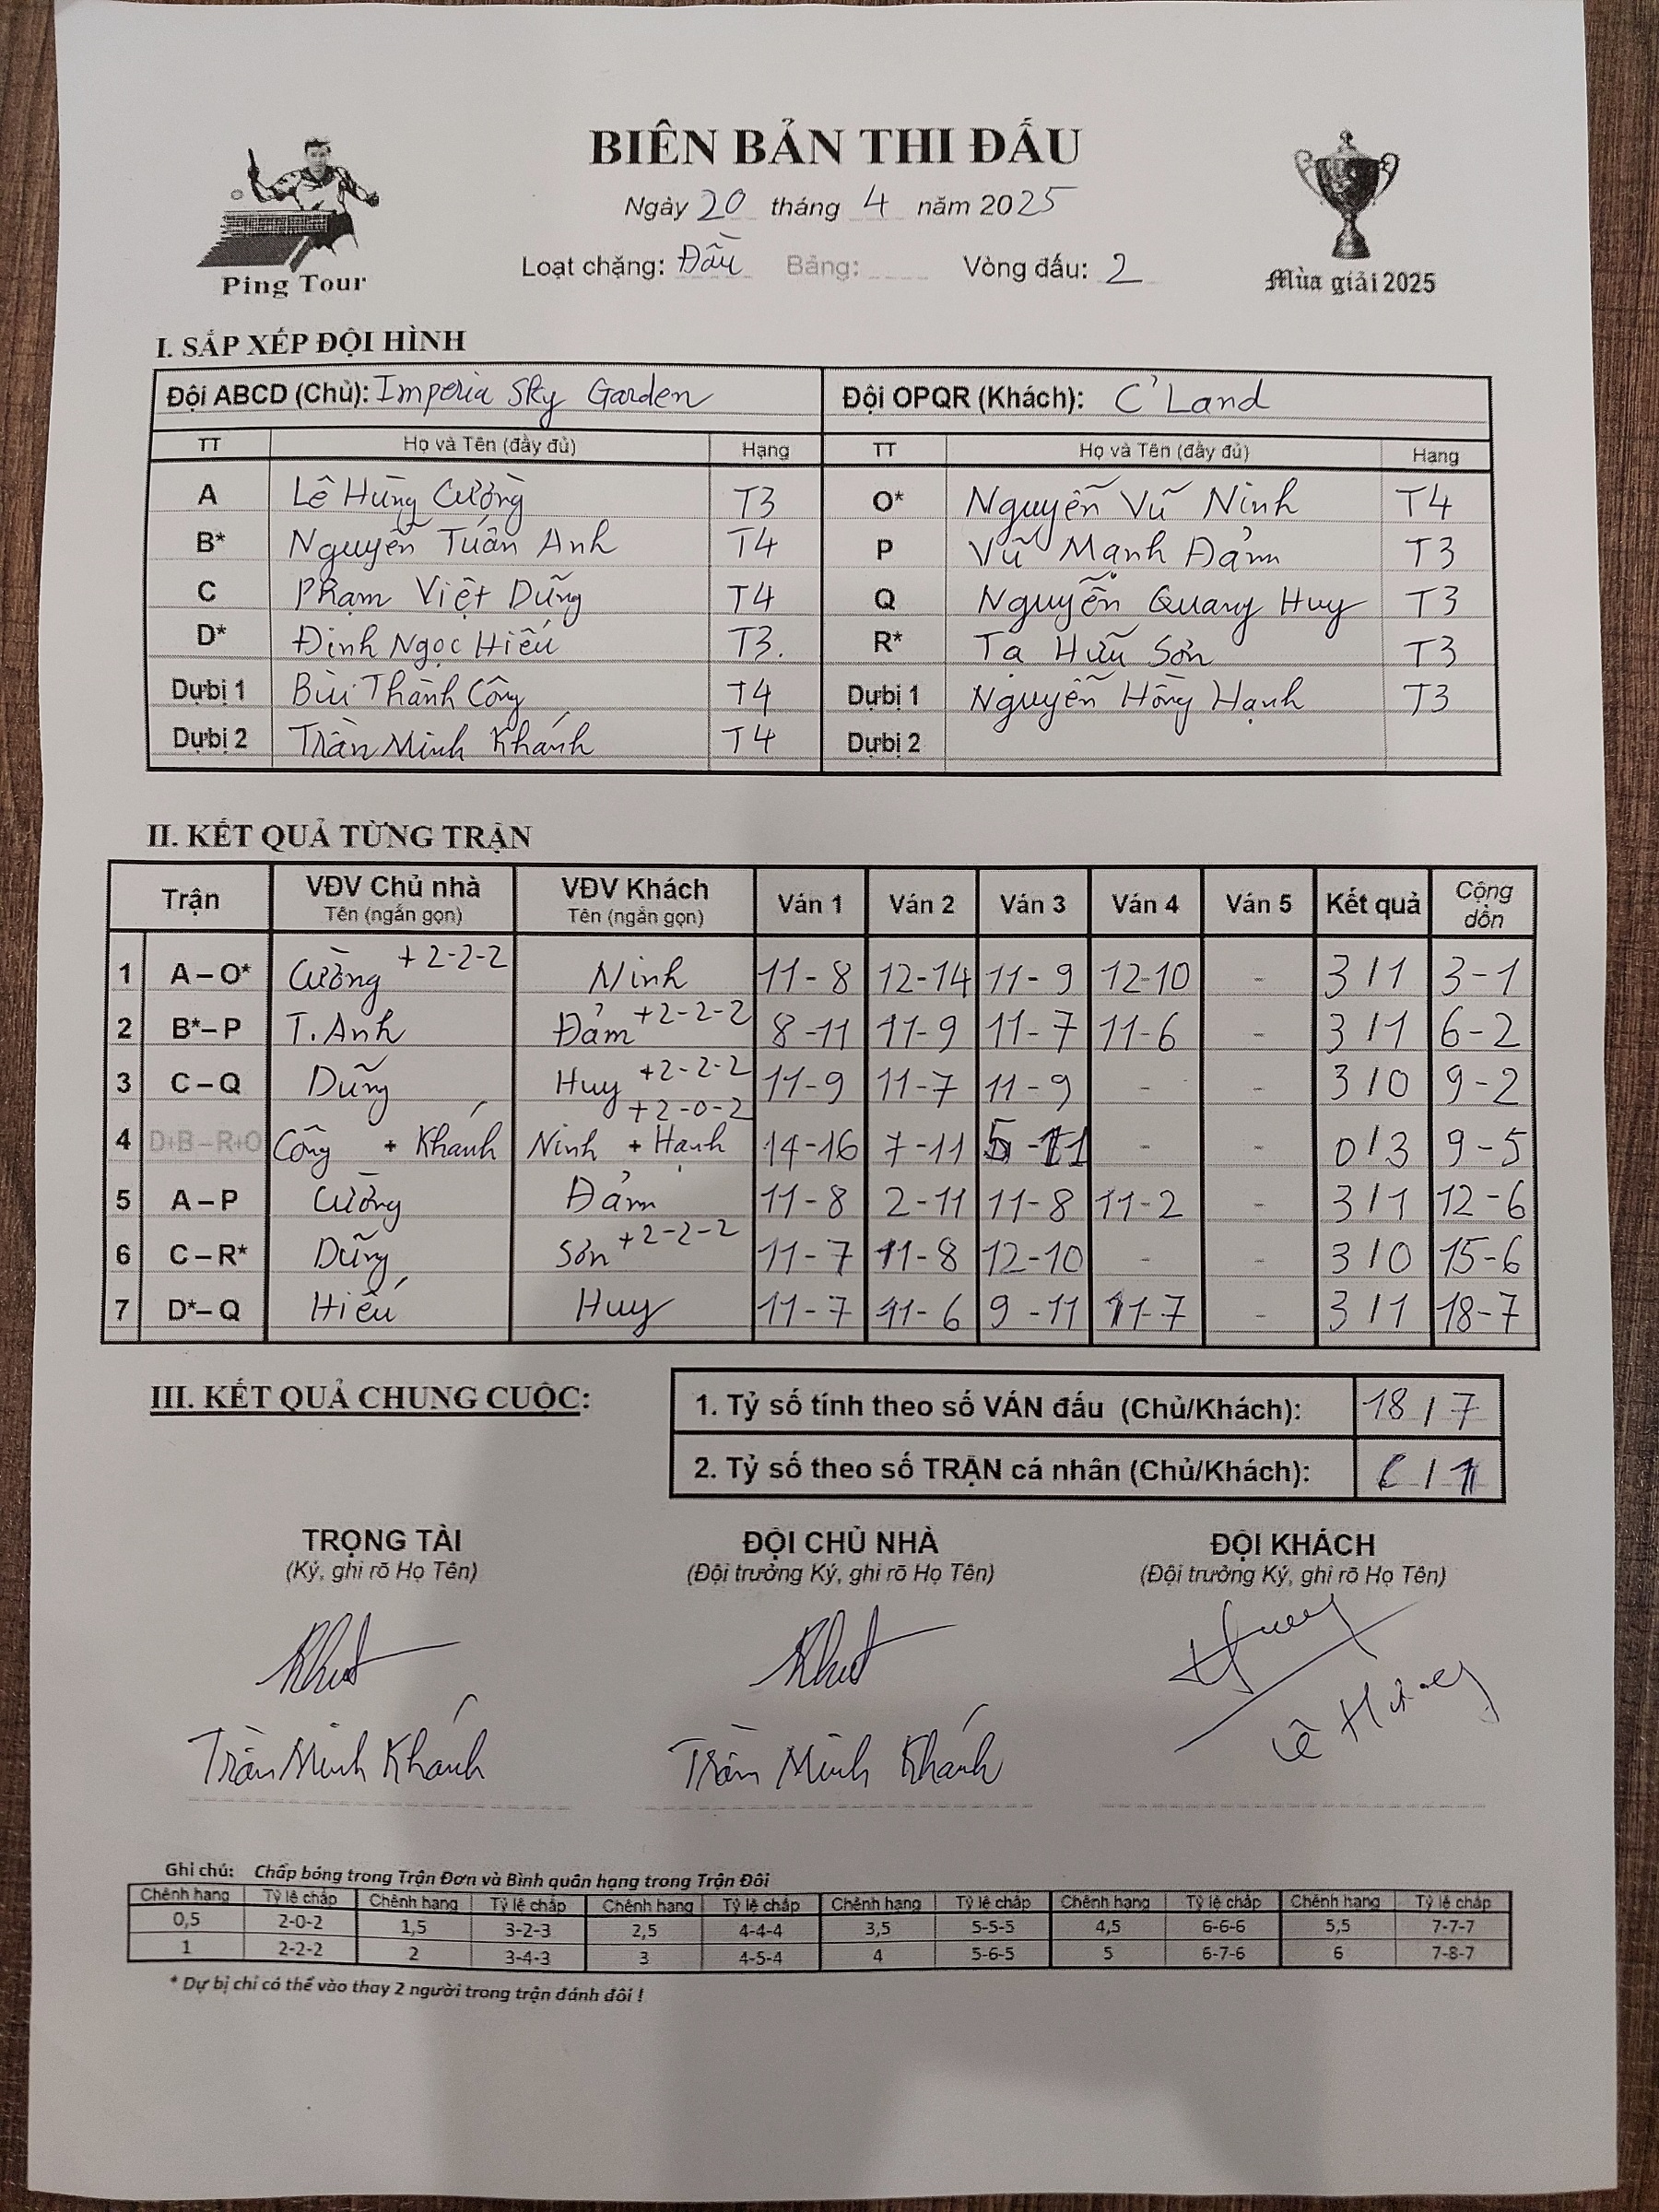 BIÊN BẢN THI ĐẤU
Ngày 20 tháng 4 năm 2025
Loạt chặng: Đầu Bảng: Vòng đấu: 2
Ping Tour
Mùa giải 2025
I. SẮP XẾP ĐỘI HÌNH
Đội ABCD (Chủ): Imperia Sky Garden Đội OPQR (Khách): C'Land
TT Họ và Tên (đầy đủ) Hạng TT Họ và Tên (đầy đủ) Hạng
A Lê Hùng Cường T3 O* Nguyễn Vũ Ninh T4
B* Nguyễn Tuấn Anh T4 P Vũ Mạnh Đảm T3
C Phạm Việt Dũng T4 Q Nguyễn Quang Huy T3
D* Đinh Ngọc Hiếu T3. R* Tạ Hữu Sơn T3
Dự bị 1 Bùi Thành Công T4 Dự bị 1 Nguyễn Hồng Hạnh T3
Dự bị 2 Trần Minh Khánh T4 Dự bị 2
II. KẾT QUẢ TỪNG TRẬN
Trận VĐV Chủ nhà Tên (ngắn gọn) VĐV Khách Tên (ngắn gọn) Ván 1 Ván 2 Ván 3 Ván 4 Ván 5 Kết quả Cộng dồn
1 A – O* Cường +2-2-2 Ninh 11-8 12-14 11-9 12-10 - 3/1 3-1
2 B* – P T. Anh Đảm +2-2-2 8-11 11-9 11-7 11-6 - 3/1 6-2
3 C – Q Dũng Huy +2-2-2 11-9 11-7 11-9 - - 3/0 9-2
4 D+B – R+O Công + Khánh Ninh + Hạnh +2-0-2 14-16 7-11 5-11 - - 0/3 9-5
5 A – P Cường Đảm 11-8 2-11 11-8 11-2 - 3/1 12-6
6 C – R* Dũng Sơn +2-2-2 11-7 11-8 12-10 - - 3/0 15-6
7 D* – Q Hiếu Huy 11-7 11-6 9-11 11-7 - 3/1 18-7
III. KẾT QUẢ CHUNG CUỘC:
1. Tỷ số tính theo số VÁN đấu (Chủ/Khách): 18/7
2. Tỷ số theo số TRẬN cá nhân (Chủ/Khách): 6/1
TRỌNG TÀI ĐỘI CHỦ NHÀ ĐỘI KHÁCH
(Ký, ghi rõ Họ Tên) (Đội trưởng Ký, ghi rõ Họ Tên) (Đội trưởng Ký, ghi rõ Họ Tên)
Trần Minh Khánh Trần Minh Khánh
Ghi chú: Chấp bóng trong Trận Đơn và Bình quân hạng trong Trận Đôi
Chênh hạng Tỷ lệ chấp Chênh hạng Tỷ lệ chấp Chênh hạng Tỷ lệ chấp Chênh hạng Tỷ lệ chấp Chênh hạng Tỷ lệ chấp Chênh hạng Tỷ lệ chấp
0,5 2-0-2 1,5 3-2-3 2,5 4-4-4 3,5 5-5-5 4,5 6-6-6 5,5 7-7-7
1 2-2-2 2 3-4-3 3 4-5-4 4 5-6-5 5 6-7-6 6 7-8-7
* Dự bị chỉ có thể vào thay 2 người trong trận đánh đôi !